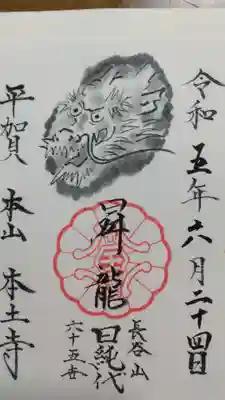 令和五年六月二十四日
昇龍
長谷山
日純代
六十五世
平賀 本山 本土寺